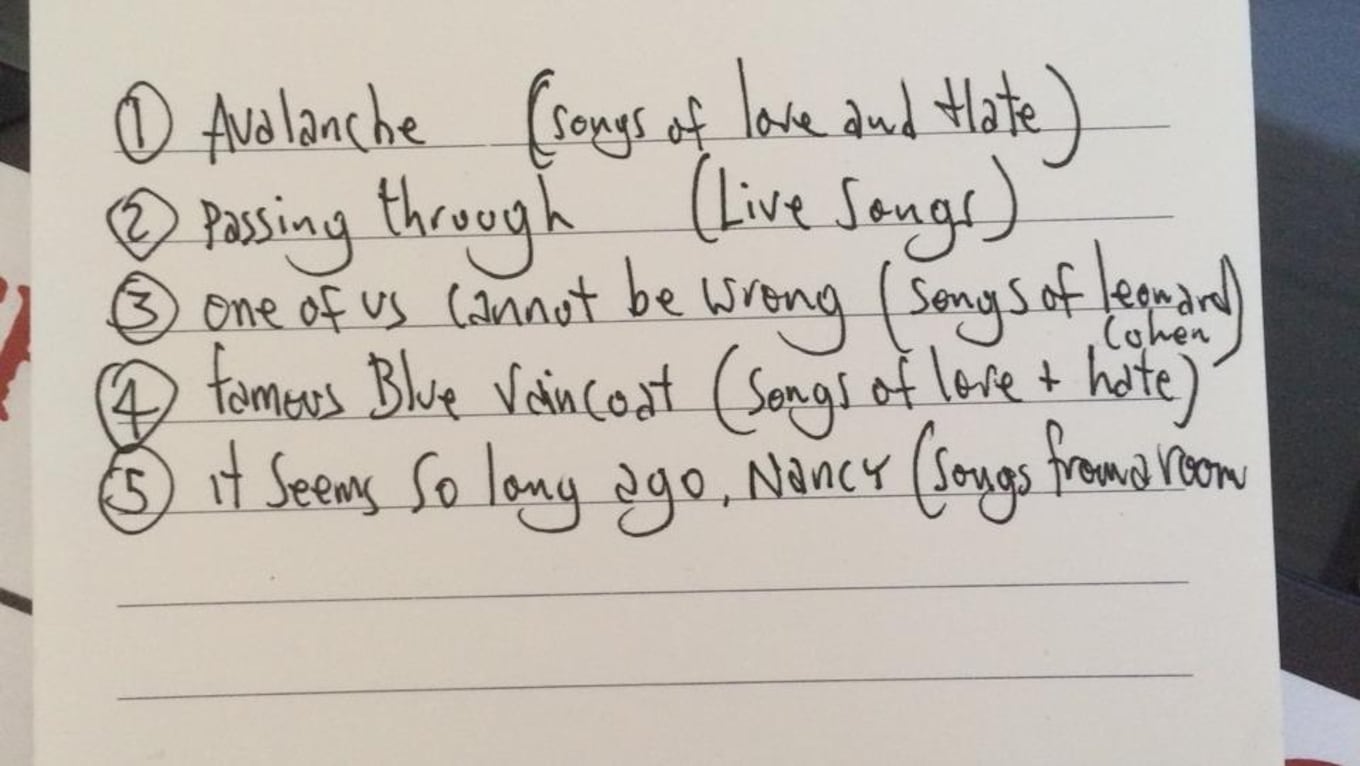 ① Avalanche (songs of love and Hate)
② Passing through (Live Songs)
③ one of us cannot be wrong (songs of leonard
Cohen)
④ famous Blue raincoat (songs of love + hate)
⑤ it seems so long ago, Nancy (songs from a room